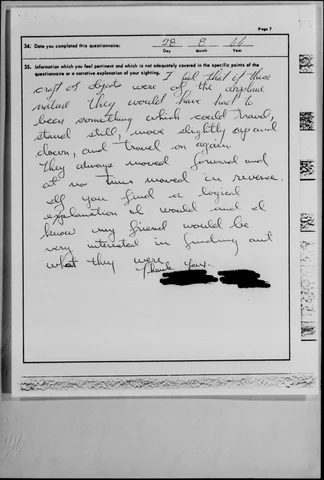 Page 7
34. Date you completed this questionnaire: 28 8 66
Day Month Year
35. Information which you feel pertinent and which is not adequately covered in the specific points of the
questionnaire or a narrative explanation of your sighting.
I feel that if these
craft or objects were of the airplane
nature they would have had to
been something which could travel,
stand still, move slightly up and
down, and travel on again.
They always moved forward and
at no time moved in reverse.
If you find a logical
explanation I would and I
know my friend would be
very interested in finding out
what they were.
Thank you.